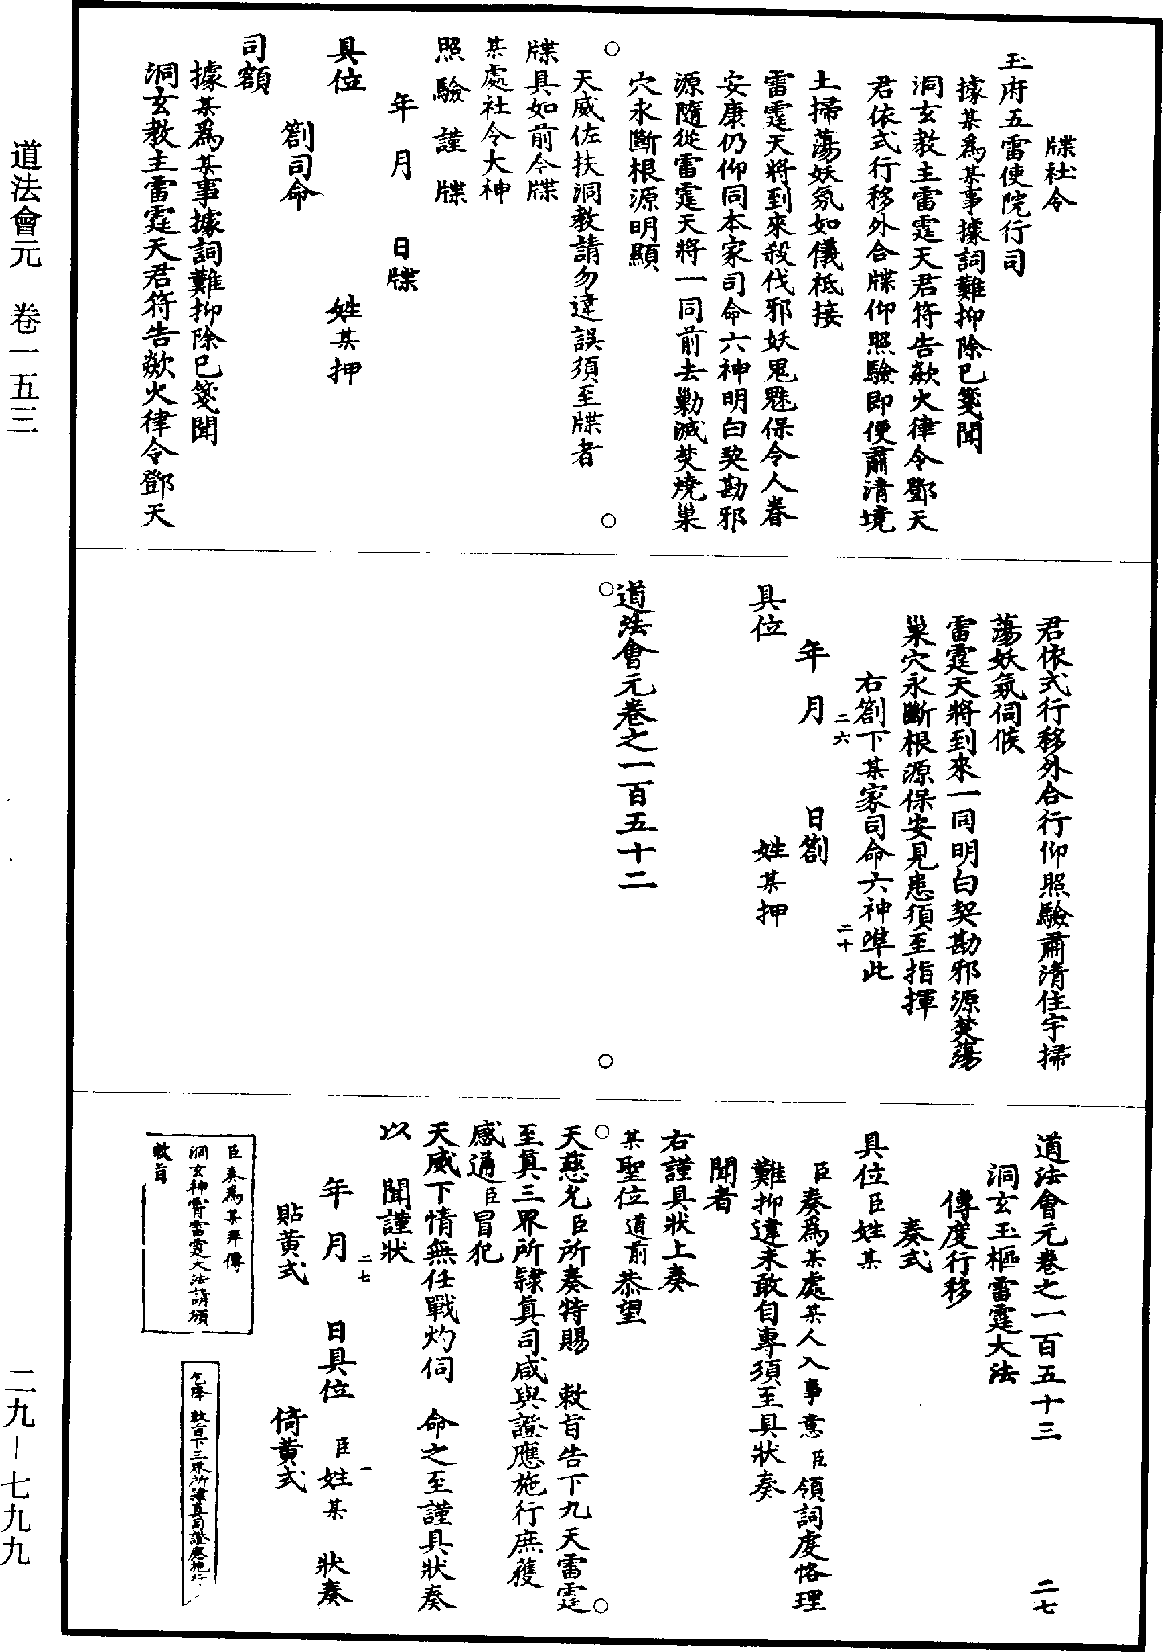 牒社令
玉府五雷使院行司
據某爲某事據詞難抑除已箋聞
洞玄教主雷霆天君符告歘火律令鄧天
君依式行移外合牒仰照驗即便肅清境
土掃蕩妖氛如儀祗接
雷霆天將到來殺伐邪妖鬼魅保令人眷
安康仍仰同本家司命六神明白契勘邪
源隨從雷霆天將一同前去勦滅焚燒巢
穴永斷根源明顯
天威佐扶洞教請勿違誤須至牒者
牒具如前今牒
某處社令大神
照驗謹牒
年 月 日牒
具位 姓某押
劄司命
司額
據某爲某事據詞難抑除已箋聞
洞玄教主雷霆天君符告歘火律令鄧天
君依式行移外合行仰照驗肅清住宇掃
蕩妖氛伺候
雷霆天將到來一同明白契勘邪源焚蕩
巢穴永斷根源保安見患須至指揮
右劄下某家司命六神準此
二六 二十
年 月 日劄
具位 姓某押
道法會元卷之一百五十二
道法會元卷之一百五十三 二七
洞玄玉樞雷霆大法
傳度行移
奏式
具位臣姓某
臣奏爲某處某人入事意臣領詞虔恪理
難抑違未敢自專須至具狀奏
聞者
右謹具狀上奏
某聖位道前恭望
天慈允臣所奏特賜 敕旨告下九天雷霆
至真三界所隸真司咸與證應施行庶獲
感通臣冒犯
天威下情無任戰灼伺 命之至謹具狀奏
以 聞謹狀
二七 一
年 月 日具位 臣姓某 狀奏
貼黃式 倚黃式
臣奏爲某奏傳
洞玄神霄雷霆大法請頒
敕旨
乞降 敕旨下三界所隸真司證應施行
道法會元 卷一五三
二九—七九九